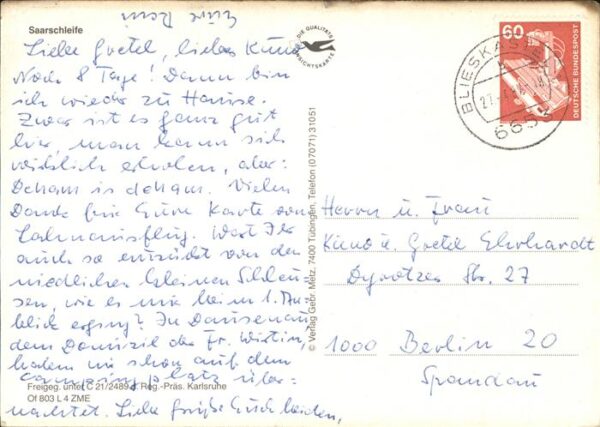 Saarschleife
Liebe Gretel, lieber Kuno
Noch 8 Tage! Dann bin
ich wieder zu Hause.
Zwar ist es ganz gut
hier, man kann sich
wirklich erholen, aber:
Daham is daham. Vielen
Dank für Eure Karte vom
Lahnausflug. Warst Ihr
auch so entzückt von den
niedlichen kleinen Schleu-
sen, wie es mir beim 1. An-
blick erging? In Dausenau
dem Domizil der Fr. Wirtin,
haben wir schon auf dem
Campingplatz über-
nachtet. Liebe Grüße Euch beiden,
Eure
DIE QUALITÄTS
ANSICHTSKARTE
60
DEUTSCHE BUNDESPOST
BLIESKASTEL
6653
© Verlag Gebr. Metz, 7400 Tübingen, Telefon (07071) 31051
Herrn u. Frau
Kuno u. Gretel Ehrhardt
Dyrotzer Str. 27
1000 Berlin 20
Spandau
Freigeg. unter C 21/2489 d. Reg.-Präs. Karlsruhe
Of 803 L 4 ZME